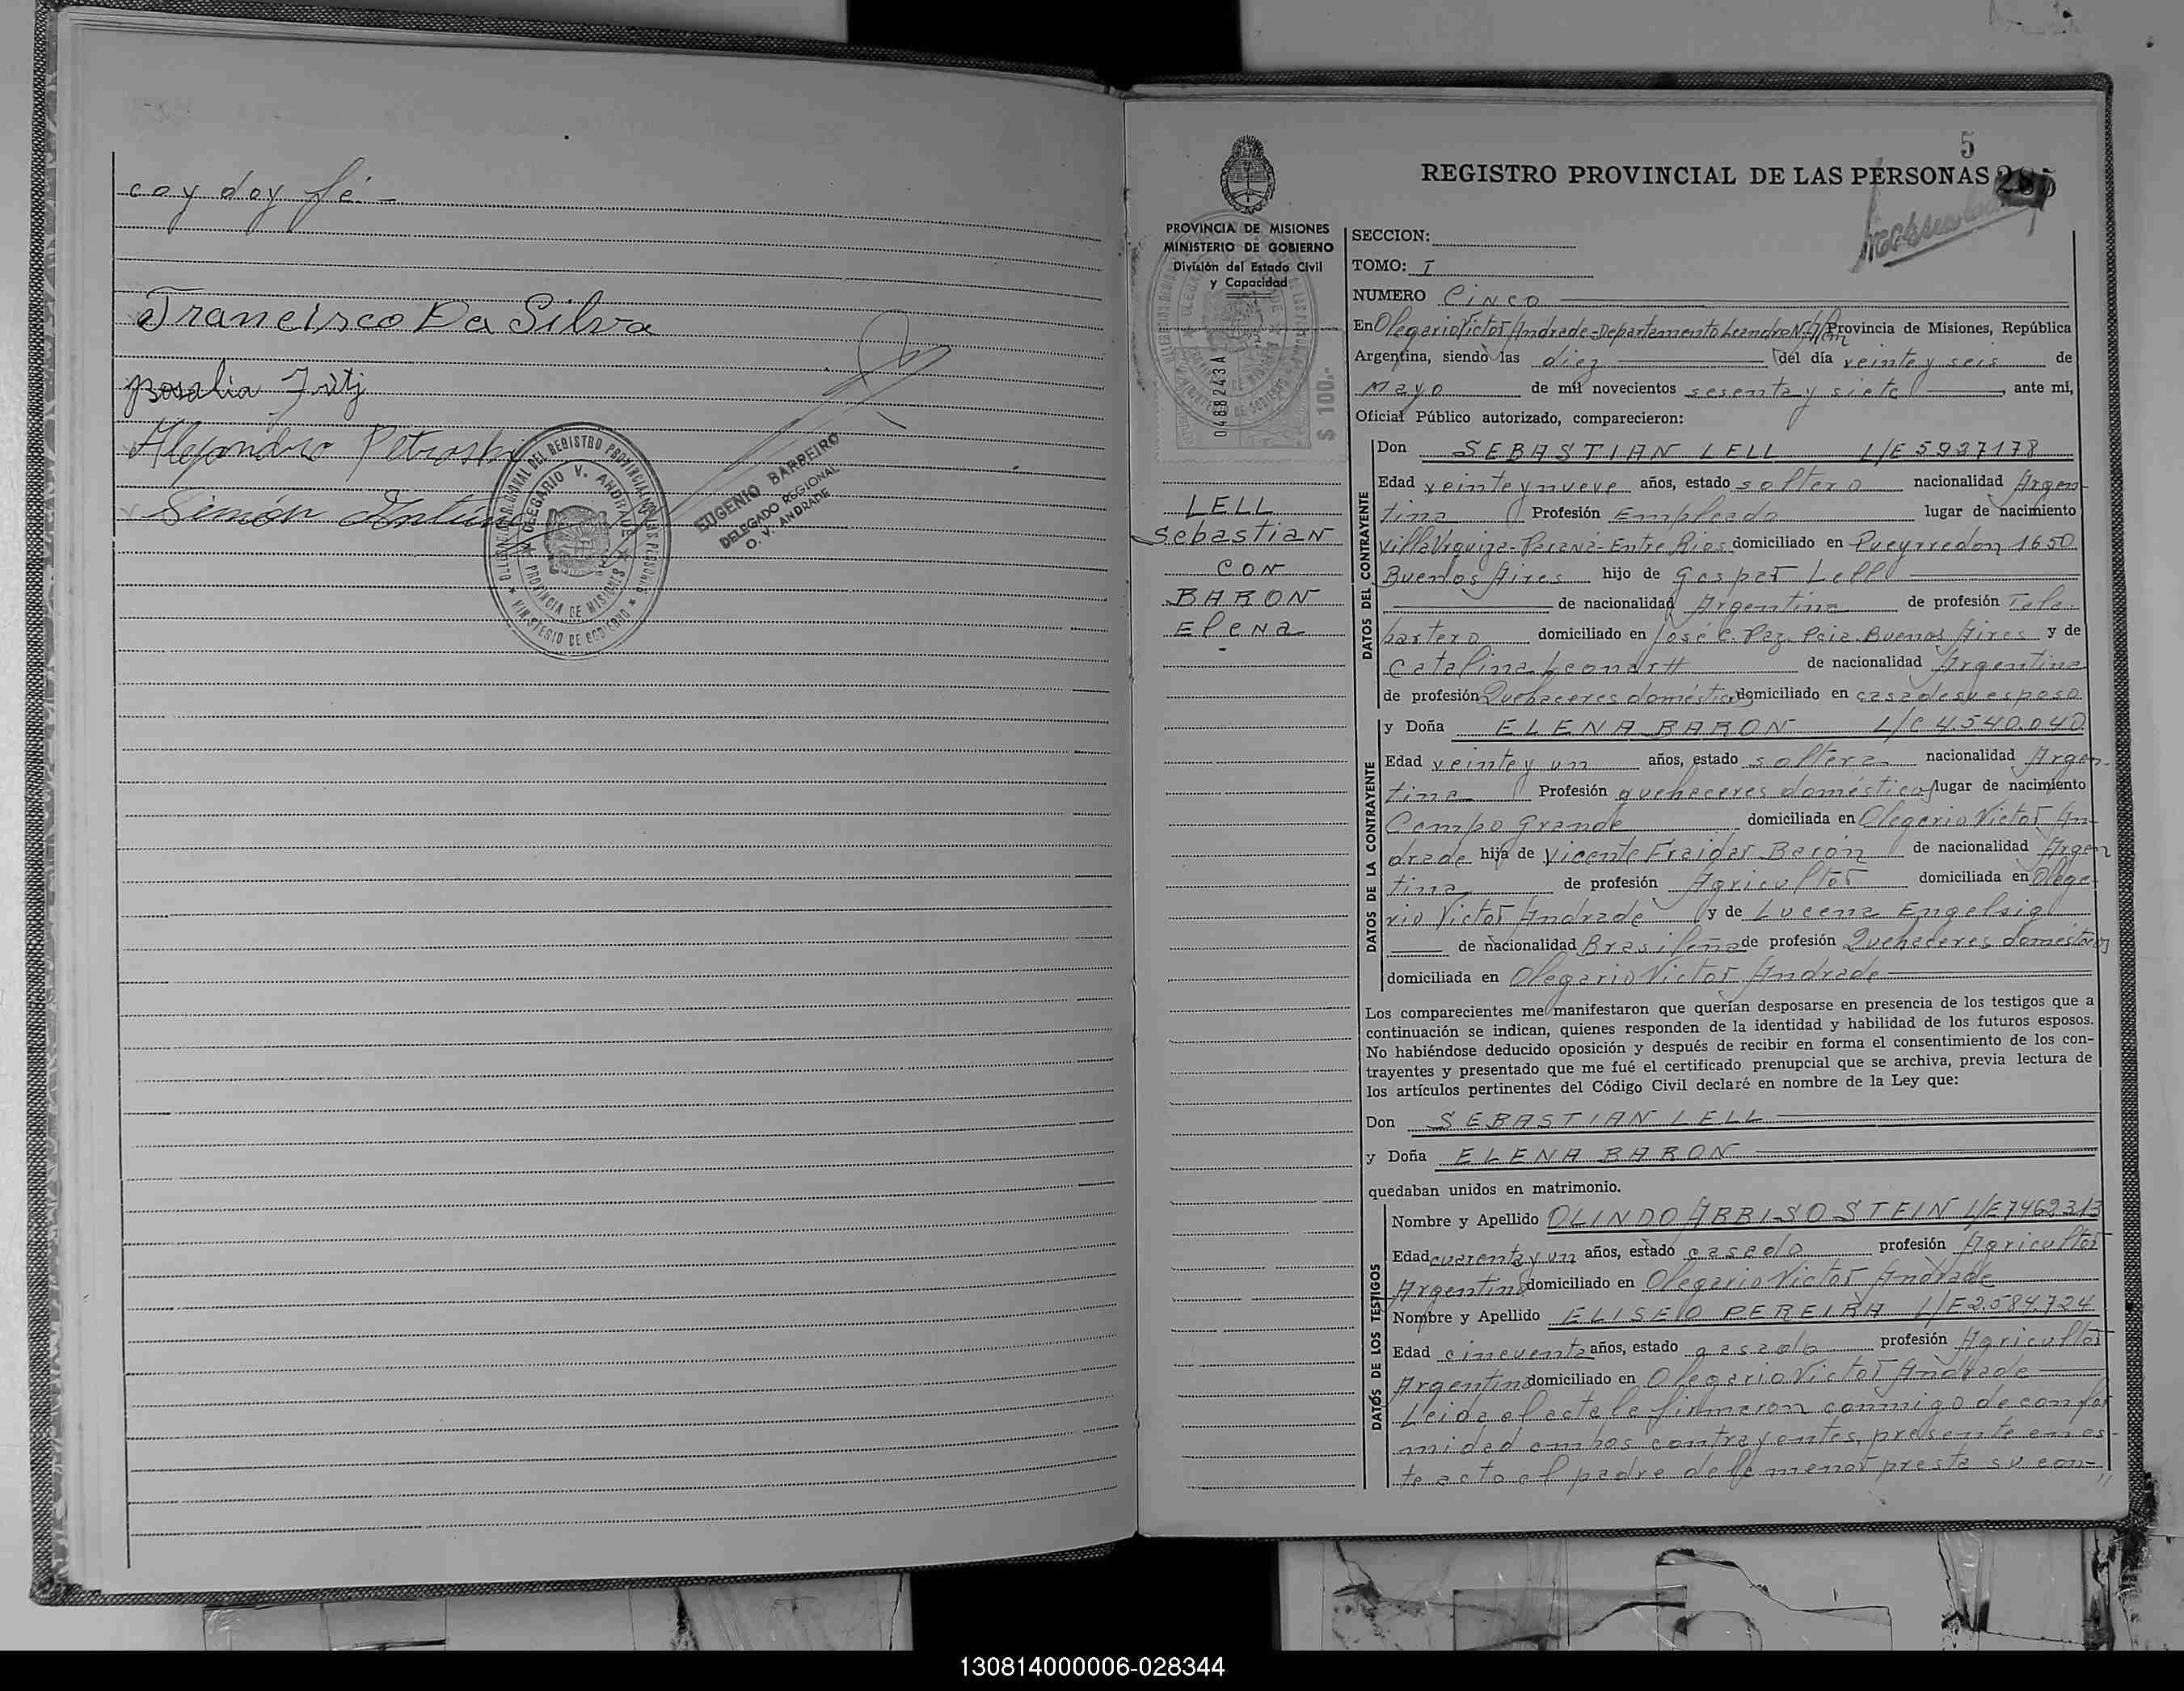 coy doy fé.-
Francisco Da Silva
Rosalia
Alejandro
Simón
DEL REGISTRO PROVINCIAL DE LAS PERSONAS
OLEGARIO V. ANDRADE
PROVINCIA DE MISIONES
MINISTERIO DE GOBIERNO
EUGENIO BARREIRO
DELEGADO REGIONAL
O. V. ANDRADE
5
REGISTRO PROVINCIAL DE LAS PERSONAS 285
PROVINCIA DE MISIONES
MINISTERIO DE GOBIERNO
División del Estado Civil
y Capacidad
0482243A
$ 100.-
LELL
Sebastian
CON
BARON
Elena
SECCION:
TOMO: I
NUMERO Cinco
En Olegario Victor Andrade-Departamento Leandro N. Alem Provincia de Misiones, República
Argentina, siendo las diez del día veinte y seis de
Mayo de mil novecientos sesenta y siete, ante mí,
Oficial Público autorizado, comparecieron:
DATOS DEL CONTRAYENTE
Don SEBASTIAN LELL L/E 5927178
Edad veinte y nueve años, estado soltero nacionalidad Argen-
tina Profesión Empleado lugar de nacimiento
Villa Urquiza-Paraná-Entre Rios domiciliado en Pueyrredon 1650
Buenos Aires hijo de Gaspar Lell
de nacionalidad Argentina de profesión Tala-
bartero domiciliado en José C. Paz. Pcia. Buenos Aires y de
Catalina Leonartt de nacionalidad Argentina
de profesión Quehaceres domésticos domiciliado en casa de su esposo
DATOS DE LA CONTRAYENTE
y Doña ELENA BARON L/C 4.540.040
Edad veinte y un años, estado soltera nacionalidad Argen-
tina Profesión quehaceres domésticos lugar de nacimiento
Campo Grande domiciliada en Olegario Victor An-
drade hija de Vicente Fraidas Baron de nacionalidad Argen
tina, de profesión Agricultor domiciliada en Olega-
rio Victor Andrade y de Lucena Engelsigl
de nacionalidad Brasileña de profesión Quehaceres domésticos
domiciliada en Olegario Victor Andrade
Los comparecientes me manifestaron que querían desposarse en presencia de los testigos que a
continuación se indican, quienes responden de la identidad y habilidad de los futuros esposos.
No habiéndose deducido oposición y después de recibir en forma el consentimiento de los con-
trayentes y presentado que me fué el certificado prenupcial que se archiva, previa lectura de
los artículos pertinentes del Código Civil declaré en nombre de la Ley que:
Don SEBASTIAN LELL
y Doña ELENA BARON
quedaban unidos en matrimonio.
DATOS DE LOS TESTIGOS
Nombre y Apellido OLINDO ABBISOSTEIN L/E 7469313
Edad cuarenta y un años, estado casado profesión Agricultor
Argentino domiciliado en Olegario Victor Andrade
Nombre y Apellido ELISEO PEREIRA L/E 2.584.724
Edad cincuenta años, estado casado profesión Agricultor
Argentino domiciliado en Olegario Victor Andrade
Leida el acta le firmaron conmigo de confor
midad ambos contrayentes, presente en es-
te acto el padre de la menor presta su con-
130814000006-028344